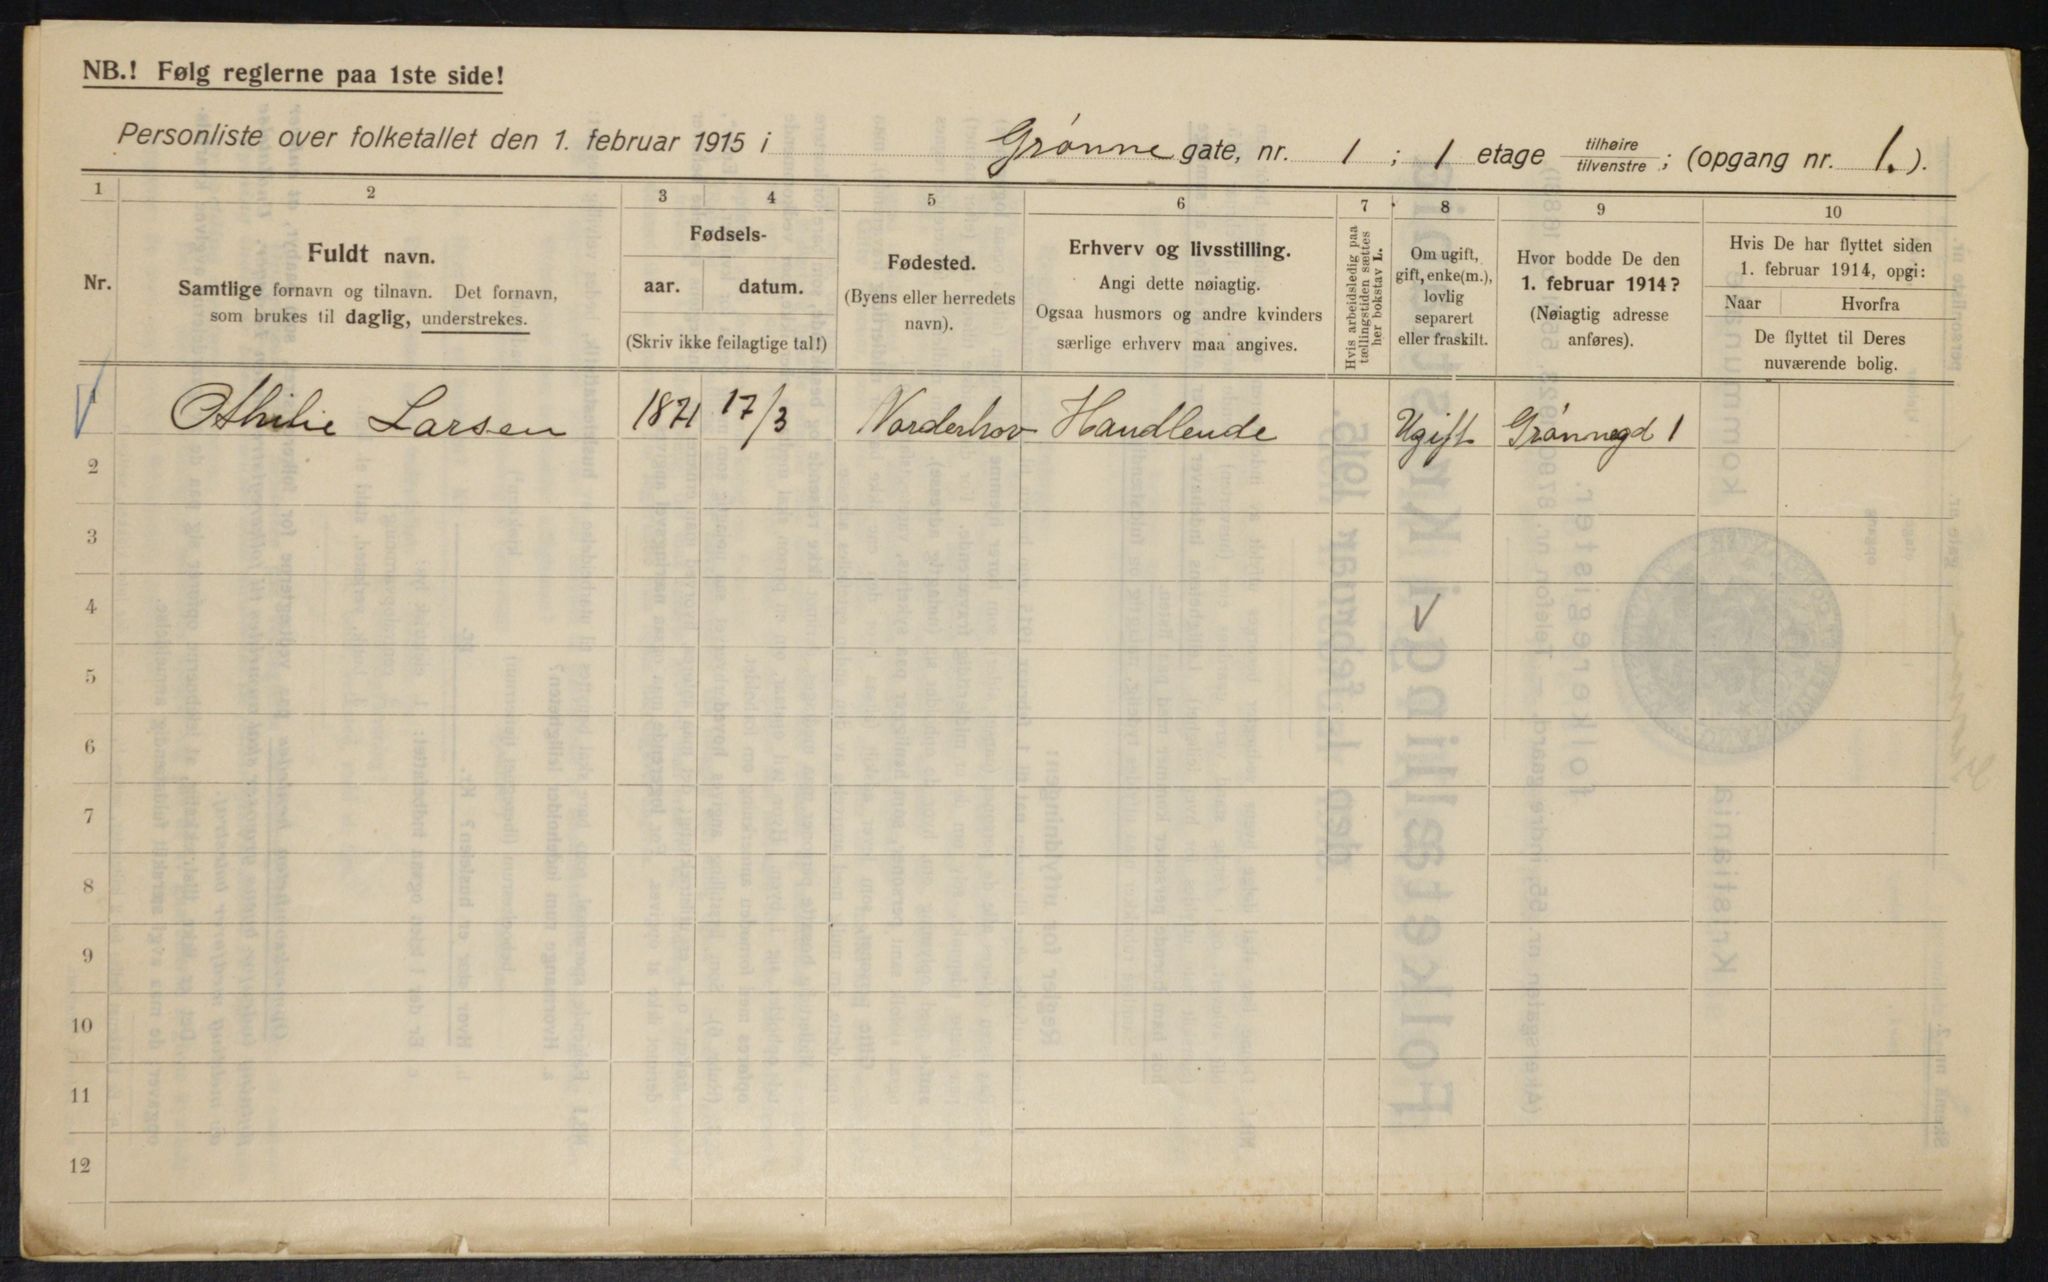 NB.! Følg reglerne paa 1ste side!
Personliste over folketallet den 1. februar 1915 i Grønne gate, nr. 1 ; 1 etage tilhøire tilvenstre ; (opgang nr. 1. ).
1 2 3 4 5 6 7 8 9 10
Nr.
Fuldt navn.
Samtlige fornavn og tilnavn. Det fornavn,
som brukes til daglig, understrekes.
Fødsels-
aar. datum.
(Skriv ikke feilagtige tal!)
Fødested.
(Byens eller herredets
navn).
Erhverv og livsstilling.
Angi dette nøiagtig.
Ogsaa husmors og andre kvinders
særlige erhverv maa angives.
Hvis arbeidsledig paa
tællingstiden sættes
her bokstav L.
Om ugift,
gift, enke(m.),
lovlig
separert
eller fraskilt.
Hvor bodde De den
1. februar 1914?
(Nøiagtig adresse
anføres).
Hvis De har flyttet siden
1. februar 1914, opgi:
Naar Hvorfra
De flyttet til Deres
nuværende bolig.
1 Othilie Larsen 1871 17/3 Norderhov Handlende Ugift Grønnegd 1
2
3
4
5
6
7
8
9
10
11
12